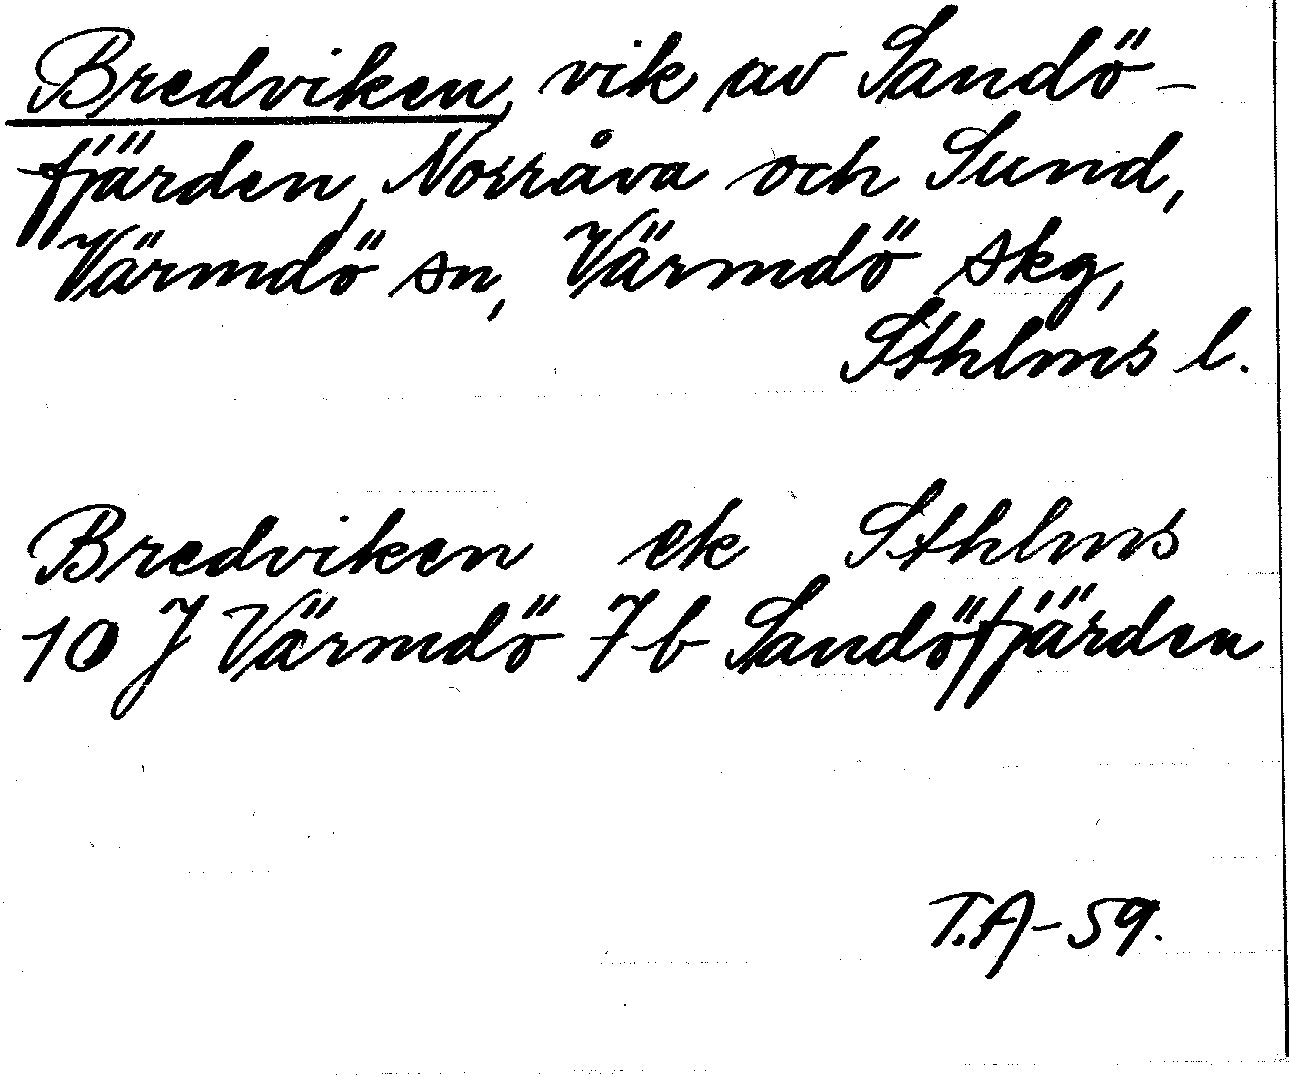 Bredviken, vik av Sandö-
fjärden, Norråva och Sund,
Värmdö sn, Värmdö skg,
Sthlms l.
Bredviken ek Sthlms
10 J Värmdö 7b Sandöfjärden
T.A-59.